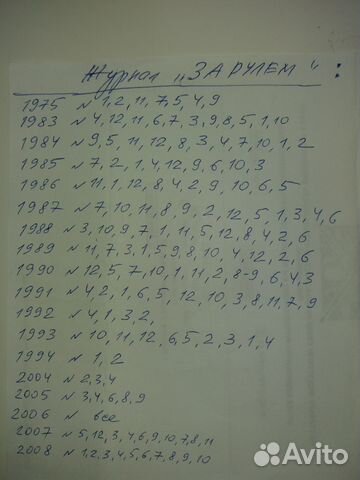 Журнал „ЗА РУЛЕМ“ :
1975 № 1,2,11,7,5,4,9
1983 № 4,12,11,6,7,3,9,8,5,1,10
1984 № 9,5,11,12,8,3,4,7,10,1,2
1985 № 7,2,1,4,12,9,6,10,3
1986 № 11,1,12,8,4,2,9,10,6,5
1987 № 7,10,11,8,9,2,12,5,1,3,4,6
1988 № 3,10,9,7,1,11,5,12,8,4,2,6
1989 № 11,7,3,1,5,9,8,10,4,12,2,6
1990 № 12,5,7,10,1,11,2,8-9,6,4,3
1991 № 4,2,1,6,5,12,10,3,8,11,7,9
1992 № 4,1,3,2,
1993 № 10,11,12,6,5,2,3,1,4
1994 № 1,2
2004 № 2,3,4
2005 № 3,4,6,8,9
2006 № все
2007 № 5,12,3,4,6,9,10,7,8,11
2008 № 1,2,3,4,5,6,7,8,9,10
Avito